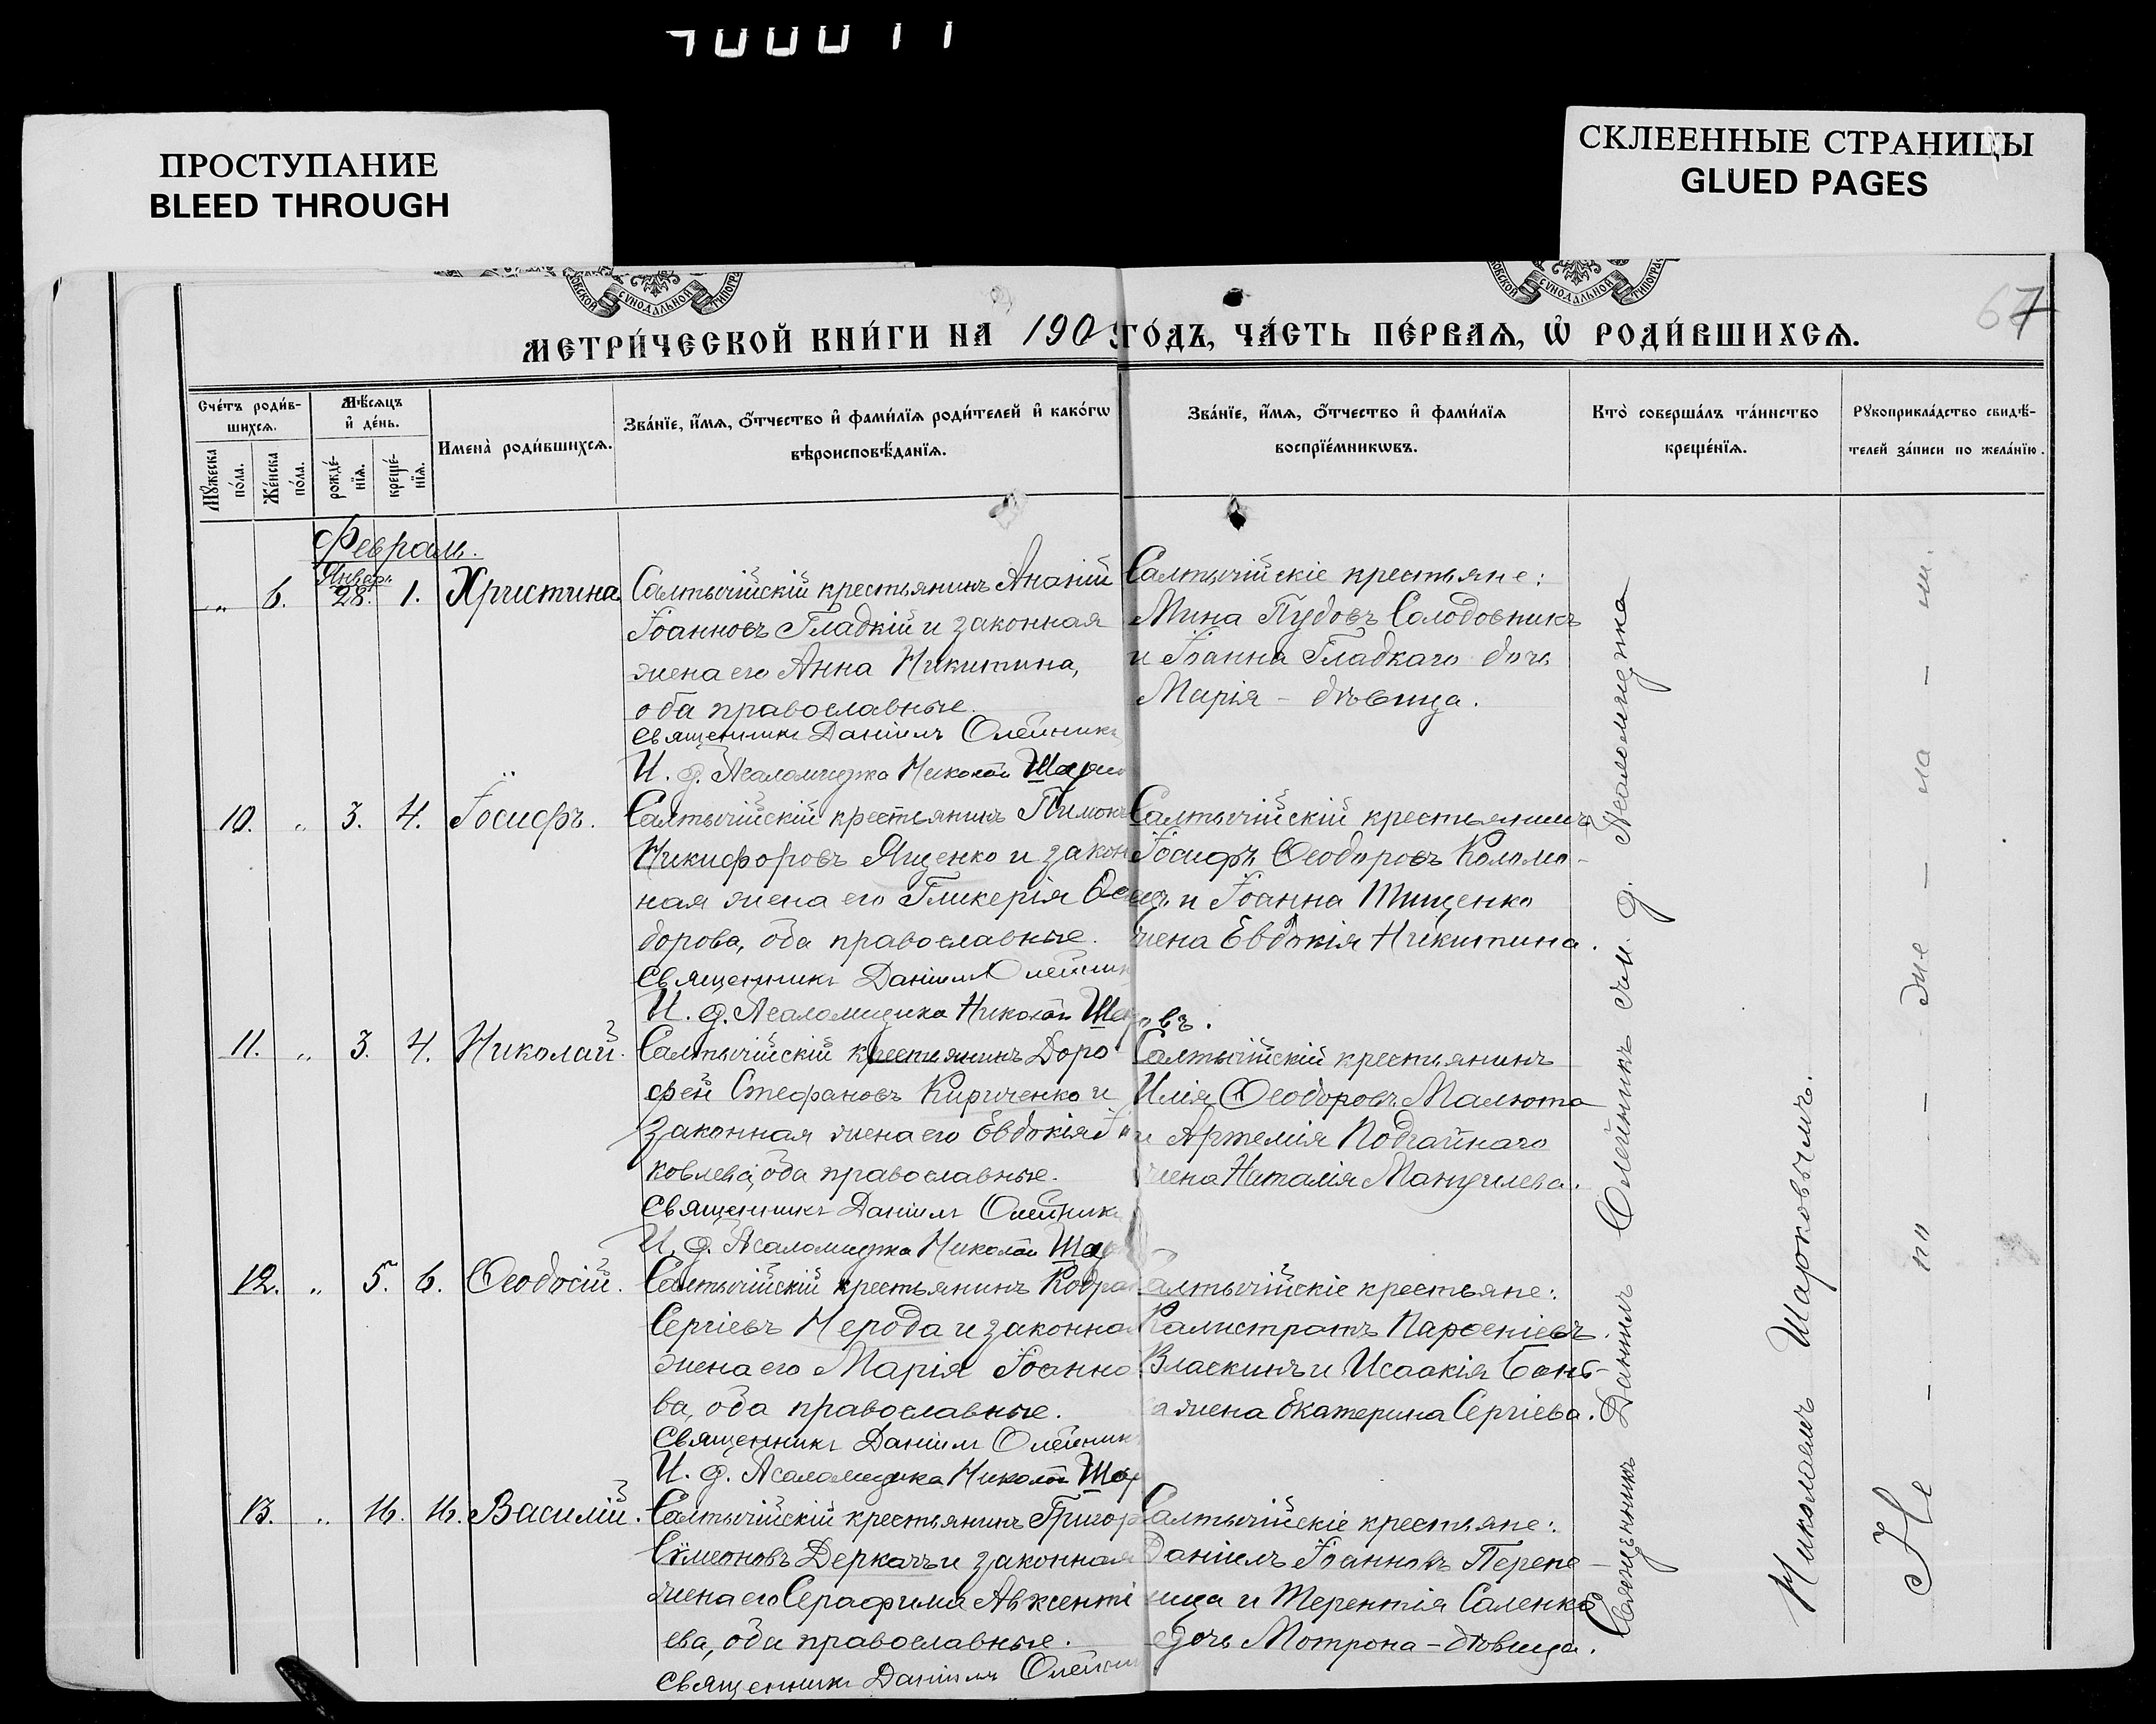 ПРОСТУПАНИЕ
BLEED THROUGH
СКЛЕЕННЫЕ СТРАНИЦЫ
GLUED PAGES
СѴНОДАЛЬНОЙ
СѴНОДАЛЬНОЙ ТИПОГРА
67
МЕТРИ́ЧЕСКОЙ КНИ́ГИ НА 190 ГО́ДЪ, ЧА́СТЬ ПЕ́РВАѦ, Ѡ҆ РОДИ́ВШИХСѦ.
Сче́тъ роди́в-
шихсѧ.
Мѣ́сѧцъ
и҆ де́нь.
Мꙋ́жеска по́ла.
Же́нска по́ла.
рожде́-нїѧ.
креще́-нїѧ.
Имена̀ роди́вшихсѧ.
Зва́нїе, и҆́мѧ, ѻ҆́тчество и҆ фами́лїѧ роди́телей и҆ како́гѡ
вѣроисповѣ́данїѧ.
Зва́нїе, и҆́мѧ, ѻ҆́тчество и҆ фами́лїѧ
воспрїе́мникѡвъ.
Кто̀ соверша́лъ та́инство
креще́нїѧ.
Рꙋкоприкла́дство свидѣ́-
телей за́писи по жела́нїю.
Февраль.
Январ.
„ 6. 28. 1. Христина
Салтычійскій крестьянинъ Ананій
Іоанновъ Гладкій и законная
жена его Анна Никитина,
оба православные.
Священникъ Даніилъ Олейникъ
И. д. Псаломщика Николай Шарко
Салтычійскіе крестьяне:
Мина Пудовъ Солодовникъ
и Іоанна Гладкаго дочь
Марія – дѣвица.
10. „ 3. 4. Іосифъ.
Салтычійскій крестьянинъ Пимонъ
Никифоровъ Ященко и закон
ная жена его Гликерія Ѳео
дорова, оба православные.
Священникъ Даніилъ Олейник
И. д. Псаломщика Николай Ша
Салтычійскій крестьянинъ
Іосифъ Ѳеодоровъ Коломо-
ецъ и Іоанна Тищенко
жена Евдокія Никитина.
овъ.
11. „ 3. 4. Николай.
Салтычійскій крестьянинъ Доро
фей Стефановъ Кириченко и
законная жена его Евдокія Іа
ковлева, оба православные.
Священникъ Даніилъ Олейник
И. д. Псаломщика Николай Шар
Салтычійскій крестьянинъ
Илія Ѳеодоровъ Малюта
и Артемія Подгайнаго
жена Наталія Мануилева.
12. „ 5. 6. Ѳеодосій.
Салтычійскій крестьянинъ Кодра
Сергіевъ Нерода и законна
жена его Марія Іоанно
ва, оба православные.
Священникъ Даніилъ Олейник
И. д. Псаломщика Николай Шар
алтычійскіе крестьяне:
Калистратъ Парѳеніевъ
Власкинъ и Исаакія Бонь-
а жена Екатерина Сергіева.
13. „ 16. 16. Василій.
Салтычійскій крестьянинъ Григор
Сѵмеоновъ Деркачъ и законная
жена его Серафима Авксенті
ева, оба православные.
Священникъ Даніилъ Олейни
Салтычійскіе крестьяне:
Даніилъ Іоанновъ Перепе-
лица и Терентія Саленко
дочь Мотрона – дѣвица.
Священникъ Даніилъ Олейникъ съ и. д. Псаломщика
Николаемъ Шарковымъ.
Не – по – же – ла – ли.